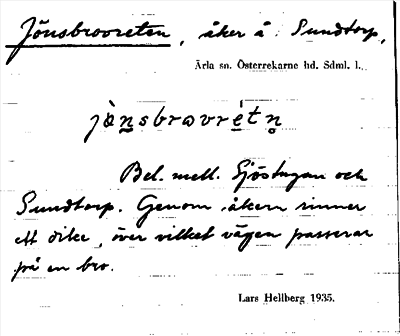 Jönsbrovreten, åker å Sundtorp,
Ärla sn. Österrekarne hd. Sdml. l.
jò̀n̥sbrωvrét n̥
Bel. mell. Sjöstugan och
Sundtorp. Genom åkern rinner
ett dike, över vilket vägen passerar
på en bro.
Lars Hellberg 1935.